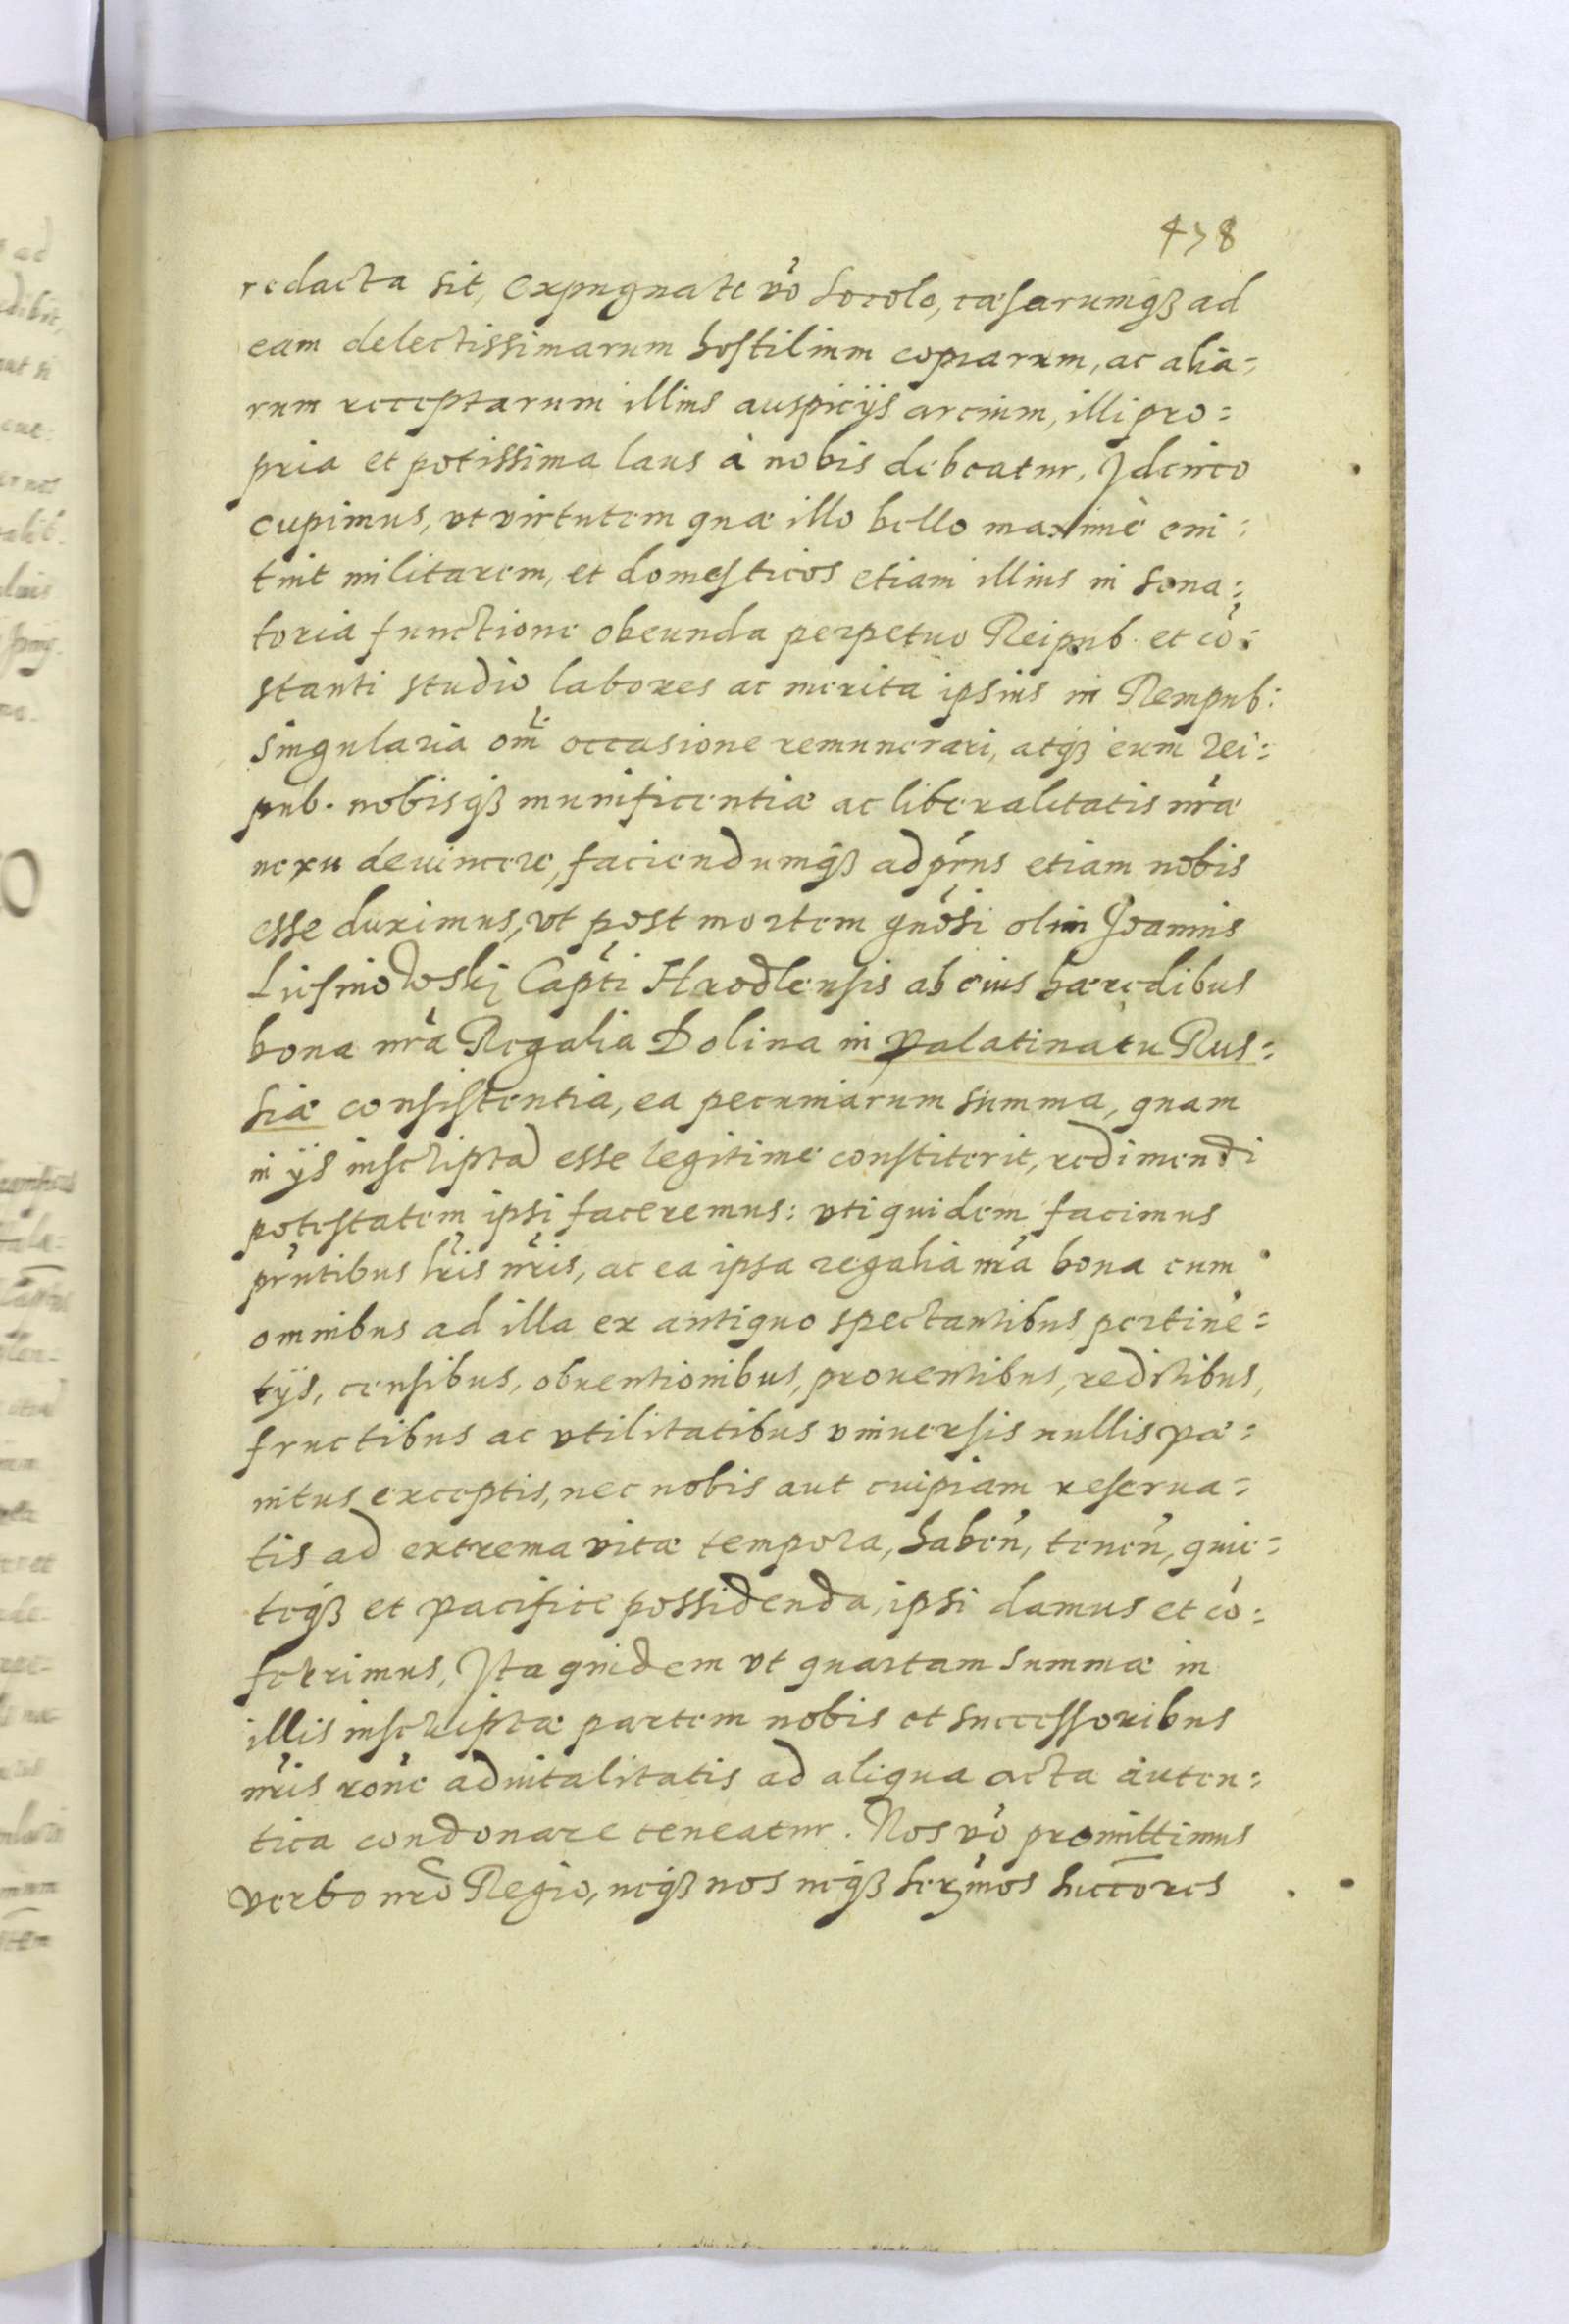 438
redacta sit, expugnate vo Socolo, cæsarumq₃ ad
eam delectissimarum hostilium copiarum, ac alia=
rum receptarum illius auspicijs arcium, illi pro=
pria et potissima laus à nobis debeatur. Idcirco
cupimus, vt virtutem quæ illo bello maximè eni=
tuit militarem, et domesticos etiam illius in Sena=
toria functione obeunda perpetuo Reipub. et cō=
stanti studio labores ac merita ipsius in Rempub:
singularia om̄i occasione remunerari, atq₃ eum rei=
pub. nobisq₃ munificentiæ ac liberalitatis nr̃æ
nexu deuincere, faciendumq₃ adpr̃ns etiam nobis
esse duximus, vt post mortem gnõsi olim Joannis
Lies̃niowskj Capti Hrodlensis ab eius hæredibus
bona nr̃a Regalia Dolina in Palatinatu Rus=
siæ consistentia, ea pecuniarum summa, quam
in ijs inscripta esse legitime constiterit, redimendi
potestatem ipsi faceremus: vti quidem facimus
pr̃ntibus lr̃is nr̃is, ac ea ipsa regalia nr̃a bona cum
omnibus ad illa ex antiquo spectantibus pertinē=
tijs, censibus, obuentionibus, prouentibus, reditibus,
fructibus ac vtilitatibus vniuersis nullis pæ=
nitus exceptis, nec nobis aut cuipiam reserua=
tis ad extrema vitæ tempora, habeñ, teneñ, quie=
teq₃ et pacifice possidenda, ipsi damus et cō=
ferimus, Ita quidem vt quartam summæ in
illis inscriptæ partem nobis et successoribus
nr̃is rõne aduitalitatis ad aliqua acta auten=
tica condonare teneatur. Nos vo promittimus
verbo nr̃o Regio, neq₃ nos neq₃ serm̃os succores